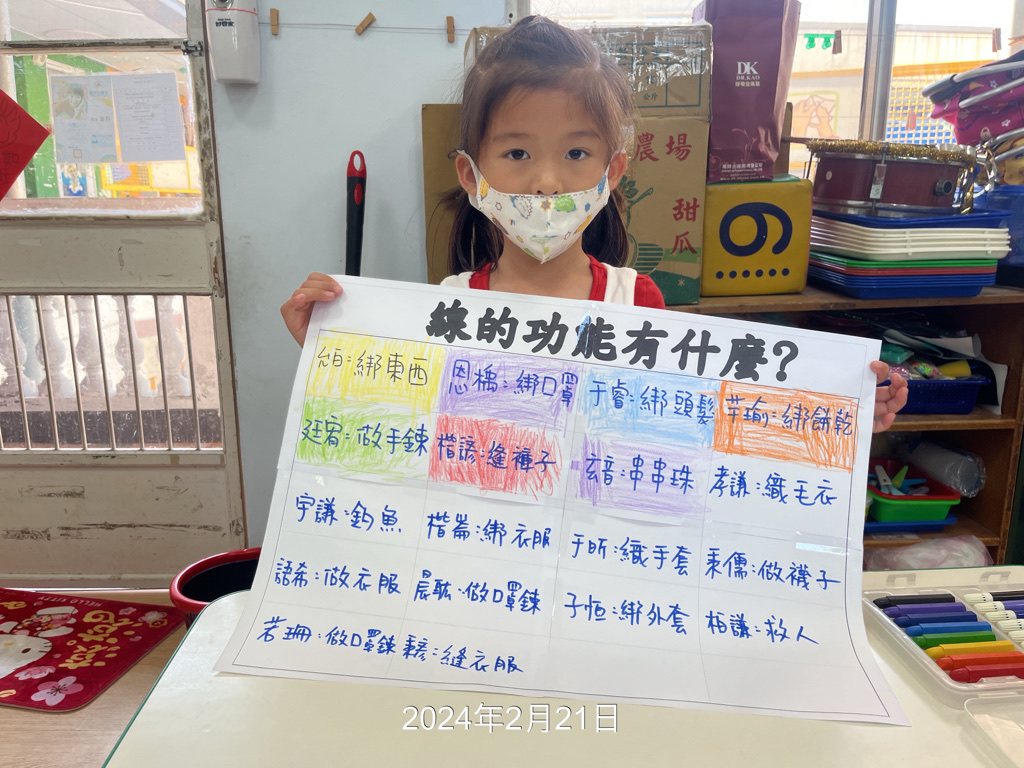 好管家
公斤
DK
DR.KAO
農場
甜
瓜
6
線的功能有什麼?
佁:綁東西
恩橋:綁口罩
于睿:綁頭髮
芊瑜:綁餅乾
廷宥:做手鍊
楷諺:縫褲子
玄音:串串珠
孝謙:織毛衣
宇謙:釣魚
楷崙:綁衣服
于昕:織手套
秉儒:做襪子
語希:做衣服
晨耘:做口罩鍊
子恒:綁外套
栢謙:救人
若珊:做口罩鍊
秉諺:縫衣服
HELLO KITTY
2024年2月21日